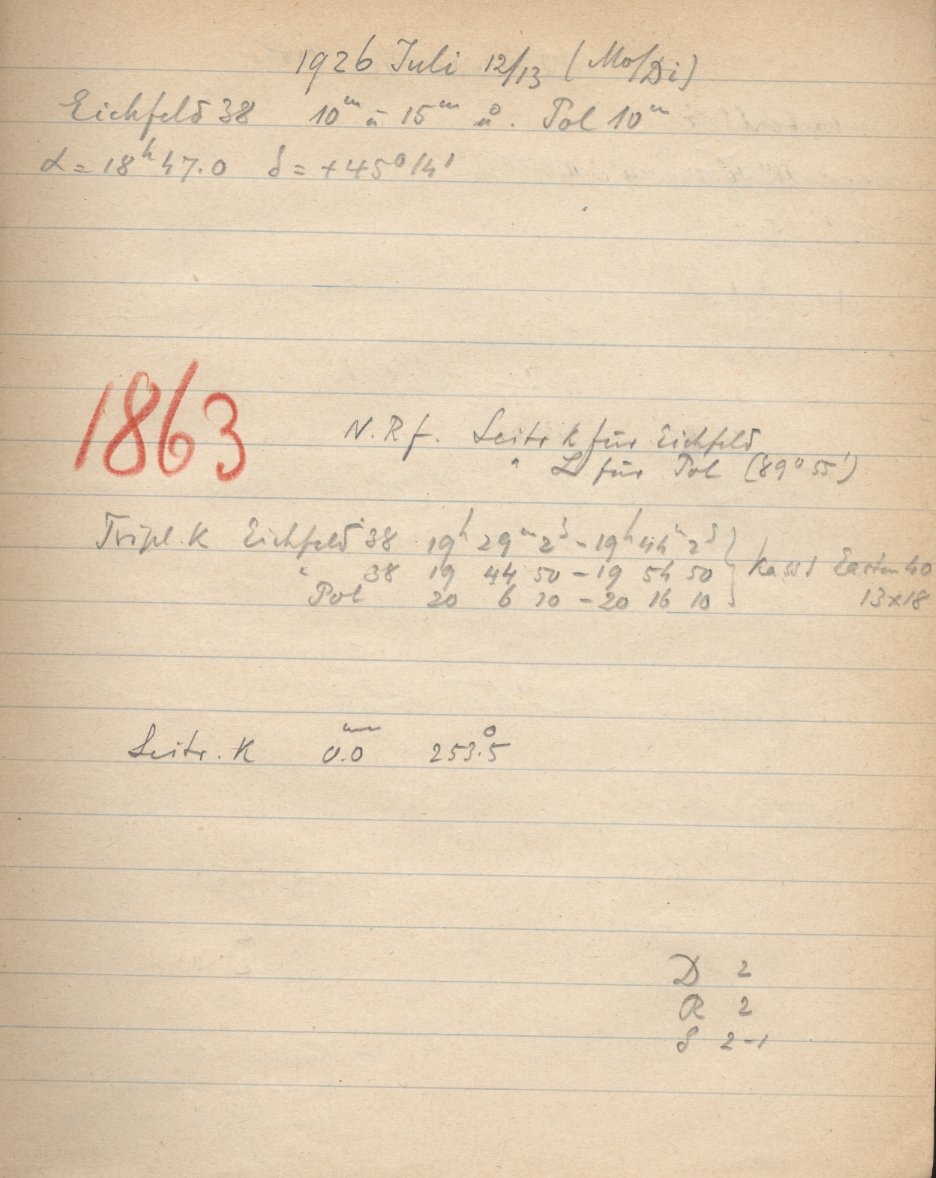 1926 Juli 12/13 (Mo/Di)
Eichfeld 38 10ᵐ u 15ᵐ u. Pol 10ᵐ
α = 18ʰ 47.0 δ = +45° 14'
1863
N.R f. Leitr K für Eichfeld
" L für Pol (89° 55')
Tripl. K Eichfeld 38 19ʰ 29ᵐ 2ˢ - 19ʰ 44ᵐ 2ˢ
" 38 19 44 50 - 19 54 50 } Kass 1 Eastm 40
Pol 20 6 10 - 20 16 10 13x18
Leitr. K 0.0 253.5°
D 2
R 2
S 2-1